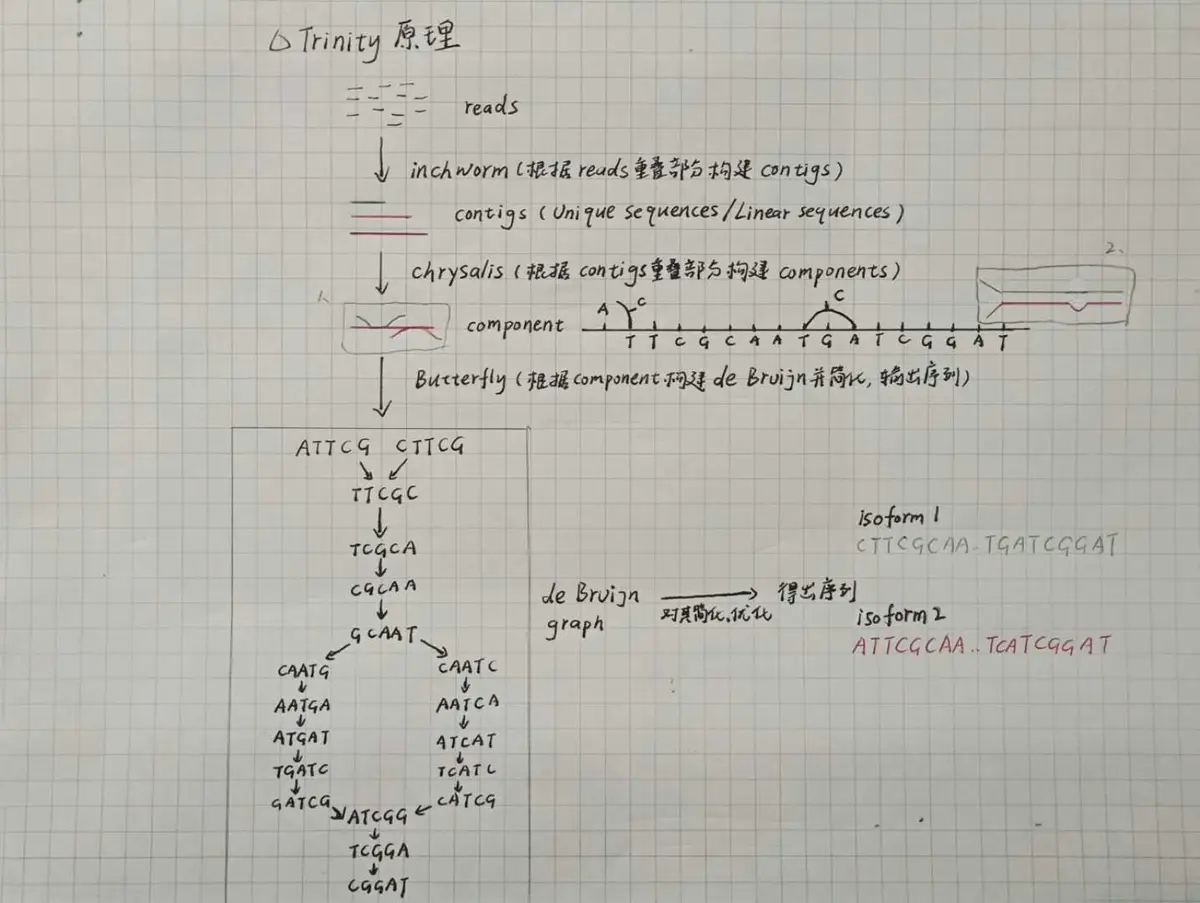 △ Trinity 原理
reads
inchworm (根据reads重叠部分构建 contigs)
contigs (Unique sequences/Linear sequences)
chrysalis (根据 contigs重叠部分构建 components)
1、
2、
component
A C C
T T C G C A A T G A T C G G A T
Butterfly (根据component构建 de Bruijn并简化, 输出序列)
ATTCG CTTCG
TTCGC
TCGCA
CGCAA
GCAAT
CAATG CAATC
AATGA AATCA
ATGAT ATCAT
TGATC TCATC
GATCG CATCG
ATCGG
TCGGA
CGGAT
de Bruijn
graph
对其简化,优化
得出序列
isoform 1
CTTCGCAA..TGATCGGAT
isoform 2
ATTCGCAA..TCATCGGAT